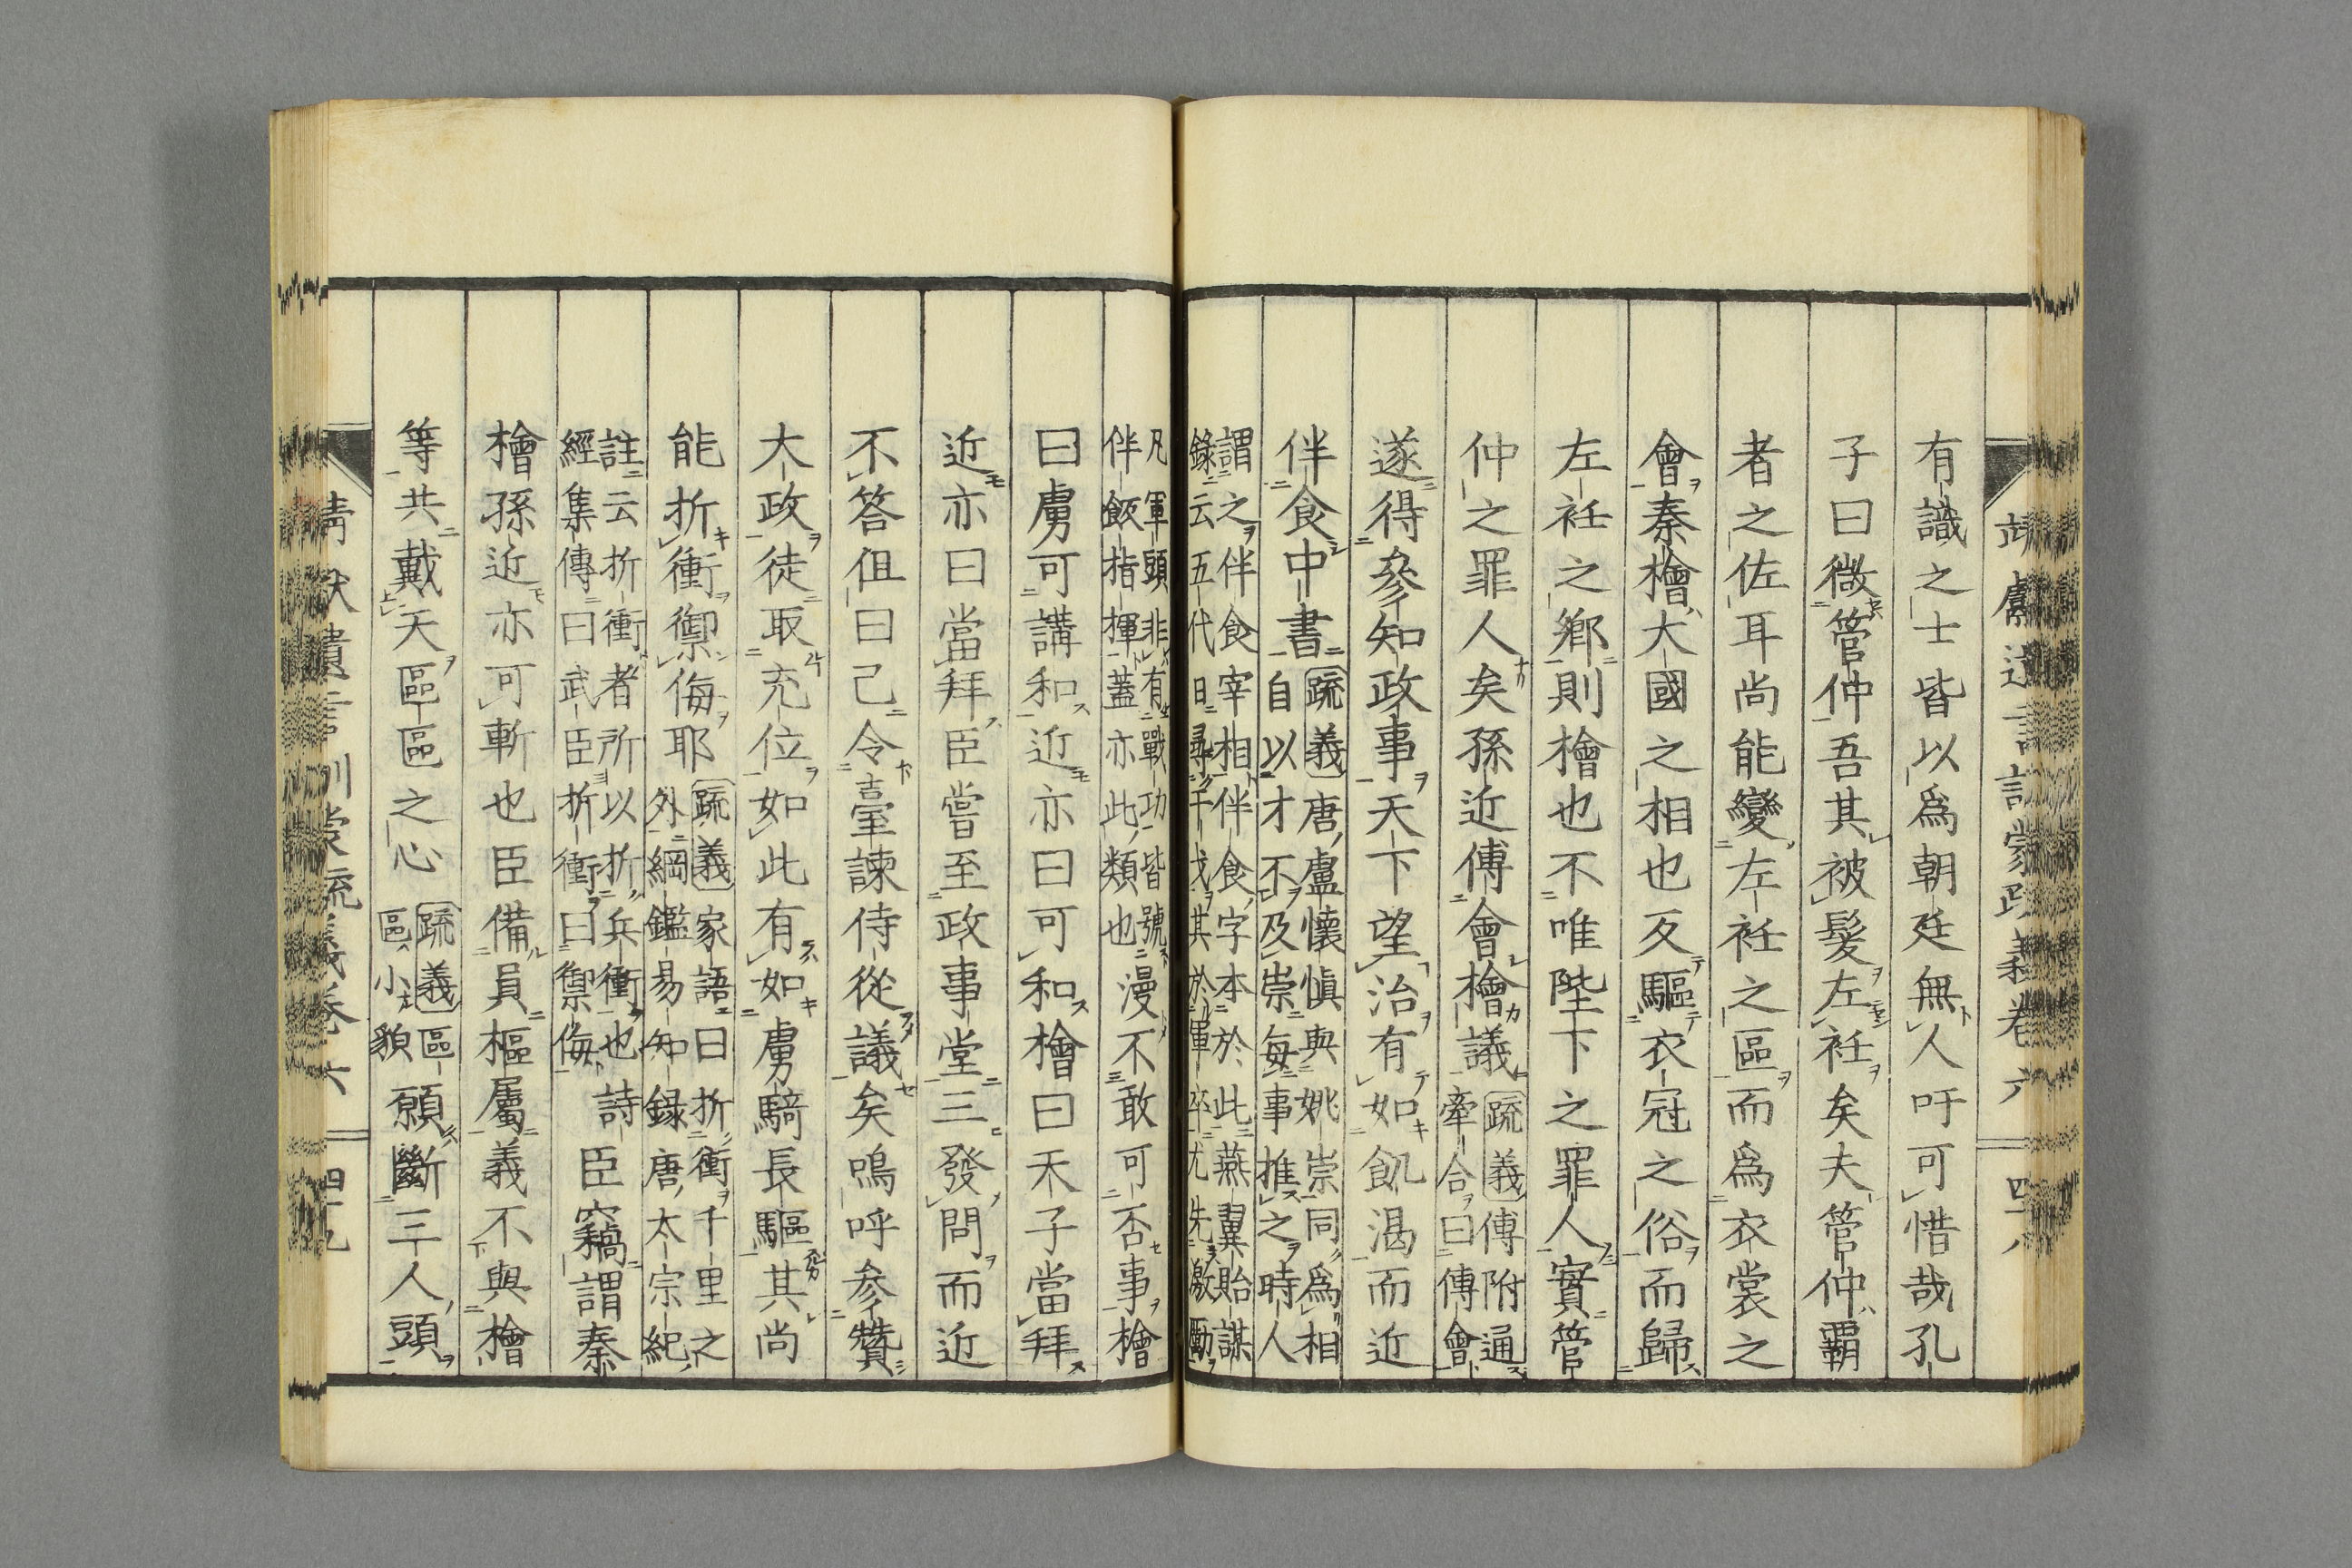 有識之士皆以爲朝廷無人吁可惜哉孔
子曰微管仲吾其被髮左衽矣夫管仲覇
者之佐耳尚能變左衽之區而爲衣裳之
會秦檜大國之相也反驅衣冠之俗而歸
左衽之鄉則檜也不唯陛下之罪人實管
仲之罪人矣孫近傅會檜議
疏義傅附通
牽合曰傅會
遂得參知政事天下望治有如飢渴而近
伴食中書
疏義唐盧懷愼與姚崇同爲相
自以才不及崇每事推之時人
謂之伴食宰相伴食字本於此燕翼貽謀
錄云五代日尋干戈其於軍卒尤先激勵
凡軍頭非有戰功皆號
伴飯指揮蓋亦此類也
漫不敢可否事檜
曰虜可講和近亦曰可和檜曰天子當拜
近亦曰當拜臣嘗至政事堂三發問而近
不答伹曰已令臺諫侍從議矣嗚呼參贊
大政徒取充位如此有如虜騎長驅其尚
能折衝禦侮耶
疏義家語曰折衝千里之
外綱鑑易知録唐太宗紀
註云折衝者所以折兵衝也詩
經集傳曰武臣折衝曰禦侮
臣竊謂秦
檜孫近亦可斬也臣備員樞屬義不與檜
等共戴天區區之心
疏義區
區小貌
願斷三人頭